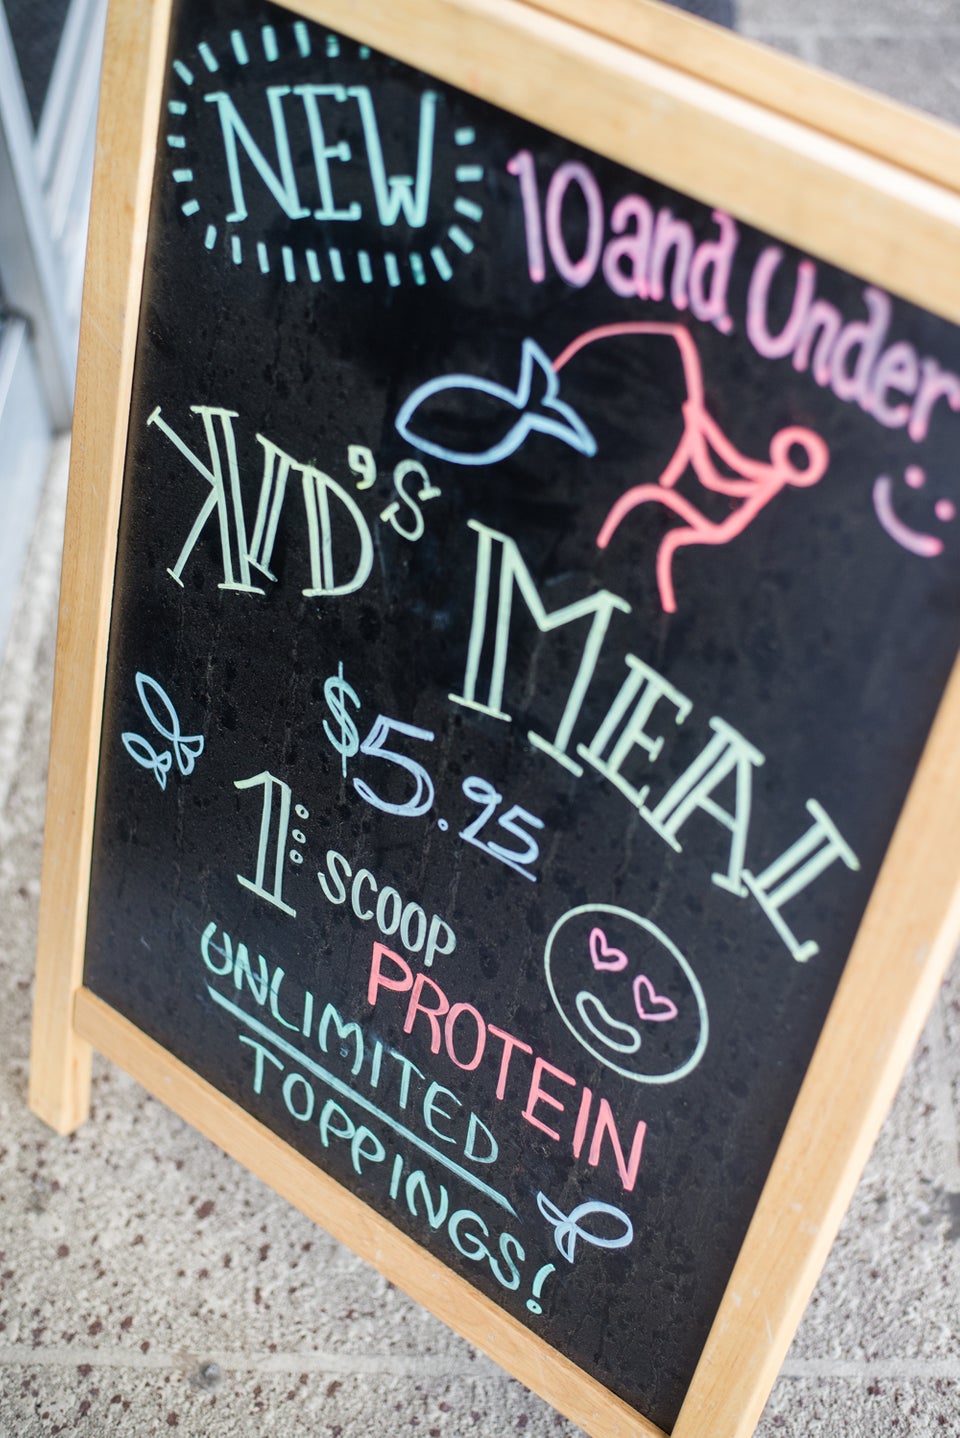 NEW
10 and Under
KID'S MEAL
$5.95
1 SCOOP
PROTEIN
UNLIMITED
TOPPINGS!